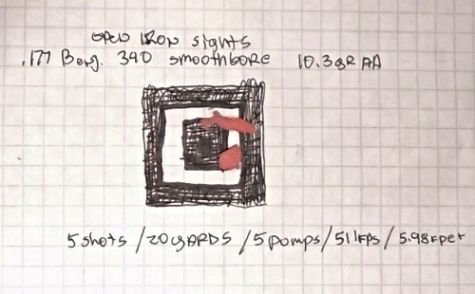 OPEN IRON sights
.177 Benj. 340 smoothbore 10.3gr AA
5 shots / 20 yARDS / 5 pumps / 511 FPS / 5.98 FPE